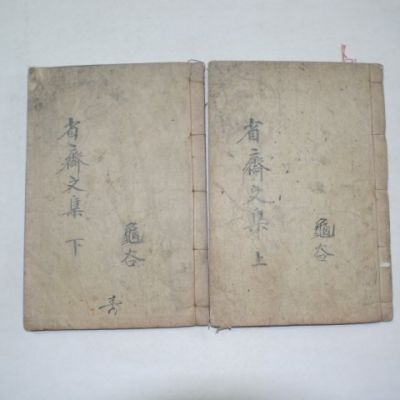 省齋文集 上
龜谷
省齋文集 下
龜谷